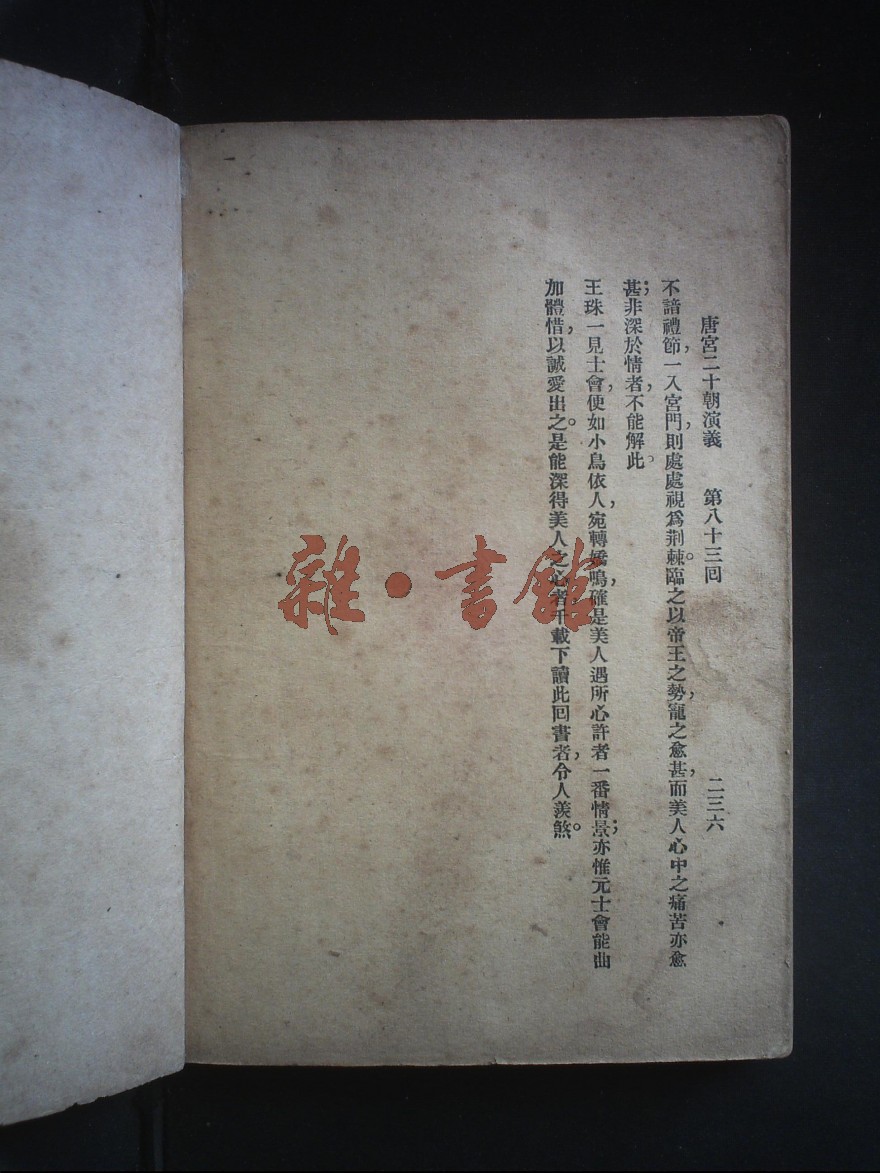 唐宮二十朝演義 第八十三回 二三六
不諳禮節,一入宮門,則處處視爲荆棘。臨之以帝王之勢,寵之愈甚,而美人心中之痛苦亦愈
甚;非深於情者,不能解此。
王珠一見士會,便如小鳥依人,宛轉嬌鳴,確是美人遇所心許者一番情景;亦惟元士會能曲
加體惜,以誠愛出之。是能深得美人之心者,千載下讀此回書者,令人羨煞。
雜·書館